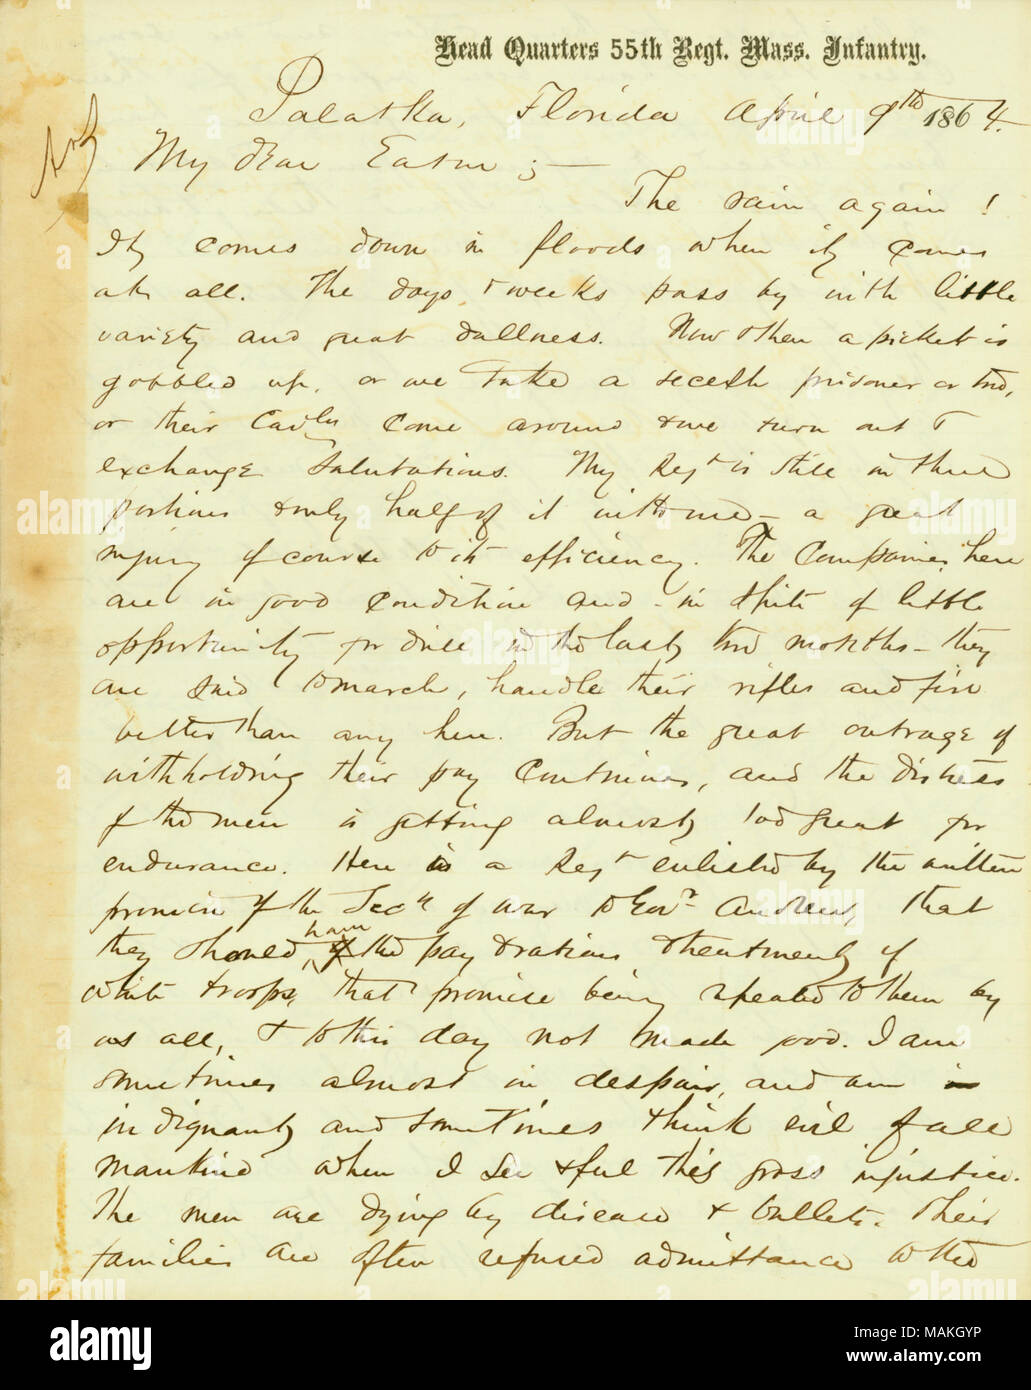 Head Quarters 55th Regt. Mass. Infantry.
Palatka, Florida April 9th 1864.
My dear Eaton ;—
The rain again !
It comes down in floods when it comes
at all. The days & weeks pass by with little
variety and great dullness. Now & then a picket is
gobbled up, or we take a secesh prisoner or two,
or their Cavlry come around & we turn out &
exchange salutations. My Regt is still in three
portions & only half of it with me — a great
injury of course to its efficiency. The Companies here
are in good condition and - in spite of little
opportunity for drill in the last two months - they
are said to march, handle their rifles and fire
better than any here. But the great outrage of
withholding their pay continues, and the distress
of the men is getting almost too great for
endurance. Here is a Regt enlisted by the written
promise of the Secy of War to Govr Andrew, that
they should, have the pay & rations & treatment of
white troops, that promise being repeated to them by
us all, & to this day not made good. I am
sometimes almost in despair, and am
indignant and sometimes think evil of all
mankind when I see & feel this gross injustice.
The men are dying by disease & bullets. Their
families are often refused admittance to the
a
alamy
alamy
Image ID: MAKGYP
www.alamy.com